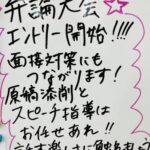 弁論大会☆
エントリー開始!!!!
面接対策にも
つながります!
原稿添削と
スピーチ指導は
お任せあれ!!